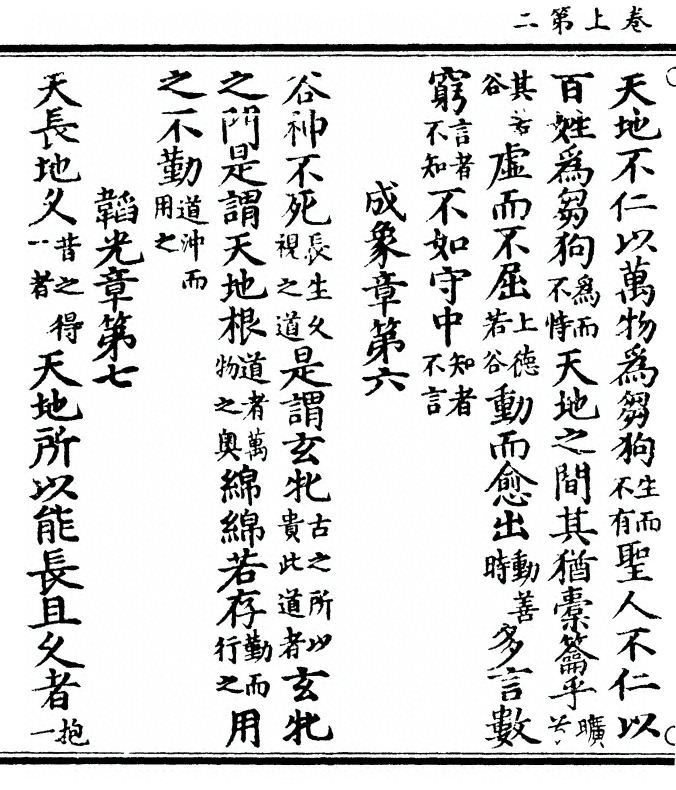 卷上第二
天地不仁以萬物爲芻狗生而不有聖人不仁以
百姓爲芻狗爲而不恃天地之間其猶橐籥乎曠兮
其若谷虛而不屈上德若谷動而愈出動善時多言數
窮言者不知不如守中知者不言
成象章第六
谷神不死長生久視之道是謂玄牝古之所以貴此道者玄牝
之門是謂天地根道者萬物之奥綿綿若存勤而行之用
之不勤道沖而用之
韜光章第七
天長地久昔之得一者天地所以能長且久者抱一